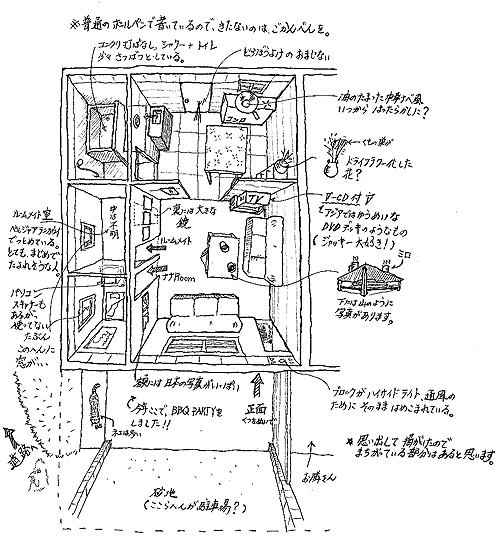 ※普通のボールペンで書いているので、きたないのは、ごかんべんを。
コンクリ打ぱなし、シャワー+トイレ
少々さっぱつとしている。
どろぼうよけのおまじない
油のたまった中華ナベ風
いつから ほったらかした?
コンロ
くもの巣が
ドライフラワー化した
花?
TV
V-CD付
アジアではゆうめいな
DVDデッキのようなもの
(ジャッキー大好き!)
ルームメイト室
でっとめている。
とても、まじめで
たおれそうな人。
中は不明
裏には大きな
鏡
ルームメイト
ナナRoom
ミロ
下には山のように
写真があります。
パソコン
スキャナーも
あるが、
使ってない
たぶん
このへんに
窓が…
額には日本の写真がいっぱい
今ここで、BBQ PARTYを
しました!!
正面
くつをぬいで
ブロックがハイサイドライト、通風の
ために そのまま はめこまれている。
ネコは多い
道路へ
お隣さん
※思い出して描がたので
まちがっている部分はあると思います。
砂地
(ここらへんが駐車場?)